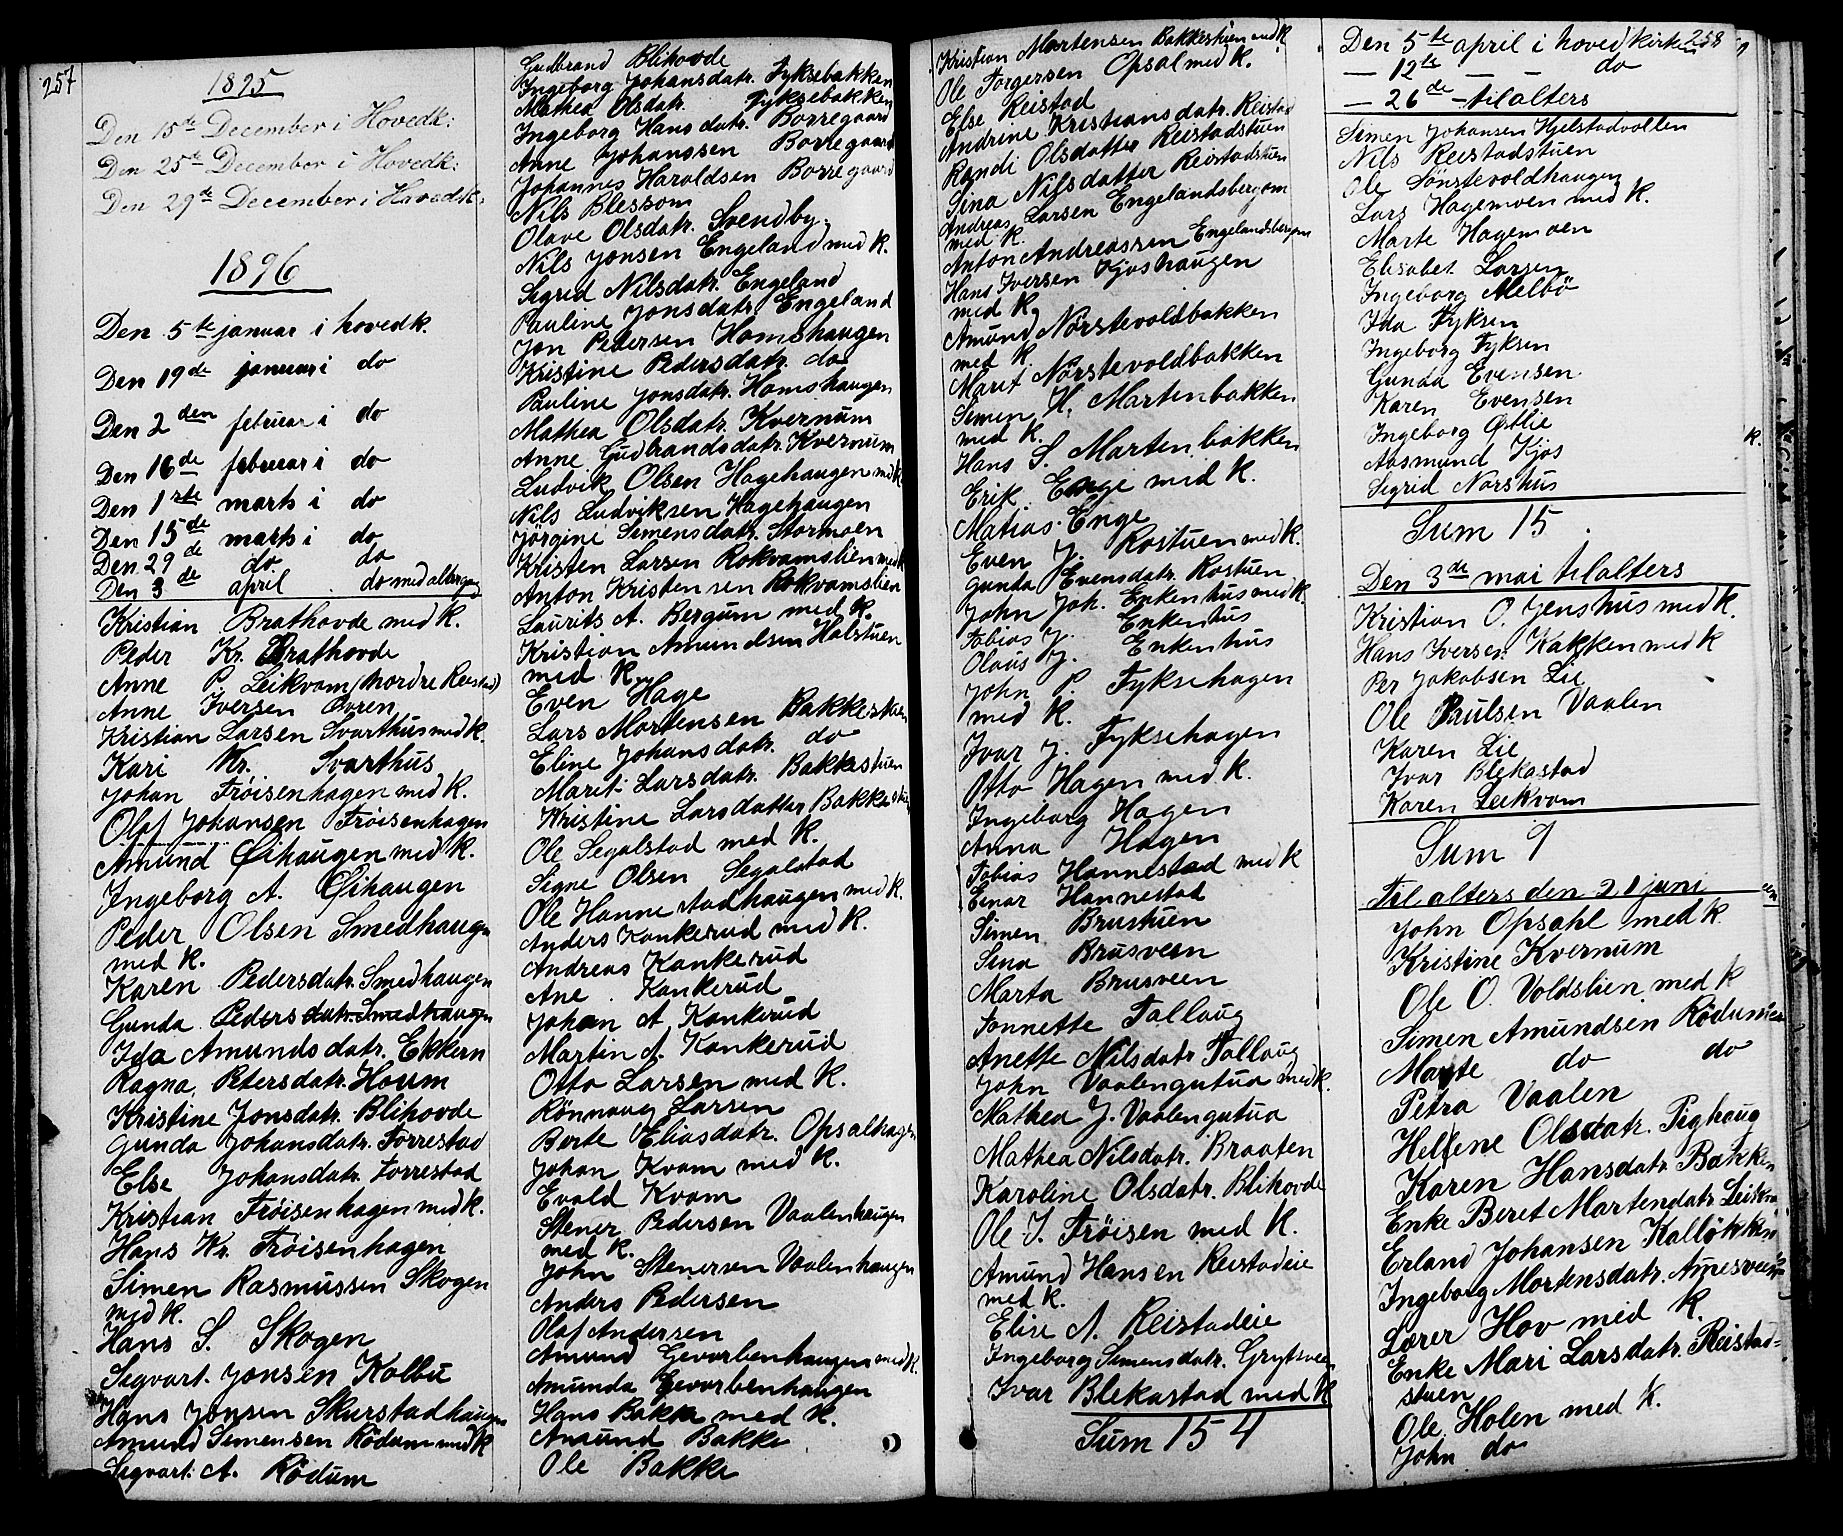 257
1895
Den 15de December i Hovedk:
Den 25de December i Hovedk:
Den 29de December i Hovedk:
1896
Den 5te januar i hovedk.
Den 19de januar i do
Den 2den februar i do
Den 16de februar i do
Den 1ste marts i do
Den 15de marts i do
Den 29de do. do
Den 3de april do med altergang
Kristian Brathovde med K.
Peder Kr. Brathovde
Anne P. Leikvam (nordre Reistad)
Anne Iversen Øvren
Kristian Larsen Svarthus med K.
Kari Kr. Svarthus
Johan Frøisenhagen med K.
Olaf Johansen Frøisenhagen
Amund Øihaugen med K.
Ingeborg A. Øihaugen
Peder Olsen Smedhaugen
med K.
Karen Pedersdatr. Smedhaugen
Gunda Pedersdatr. Smedhaugen
Ida Amundsdatr. Ekkern
Ragna Petersdatr. Houm
Kristine Jonsdatr. Blihovde
Gunda Johansdatr. Torrestad
Else Johansdatr. Torrestad
Kristian Frøisenhagen med K.
Hans Kr. Frøisenhagen
Simen Rasmussen Skogen
med K.
Hans S. Skogen
Sigvart Jonsen Kolbu
Hans Jonsen Skurstadhaugen
Amund Simensen Rödum med K
Sigvart A. Rödum
Gudbrand Blihovde
Ingeborg Johansdatr. Fyksebakken
Mathea Olsdatr. Fyksebakken
Ingeborg Hansdatr. Borregaard
Anne Johanssen Borregaard
Johannes Haroldsen Borregaard
Nils Blessom
Olave Olsdatr. Svendby.
Nils Jonsen Engeland med K.
Sigrid Nilsdatr. Engeland
Pauline Jonsdatr. Engeland
Jon Pedersen Homshaugen
Kristine Pedersdatr. do
Pauline Jonsdatr. Homshaugen
Mathea Olsdatr. Kvernum
Anne Gudbrandsdatr. Kvernum
Ludvik Olsen Hagehaugen med K
Nils Ludviksen Hagehaugen
Jörgine Simensdatr. Stormoen
Kristen Larsen Rokvamslien med K
Anton Kristensen Rokvamslien
Laurits A. Bergum med K.
Kristian Amundsen Halstuen
med K.
Even Hage
Lars Mortensen Bakkestuen
Eline Johansdatr. do
Marit Larsdatr. Bakkestuen
Kristine Larsdatter Bakkestuen
Ole Segalstad med K.
Signe Olsen Segalstad
Ole Hannestadhaugen med K.
Anders Kankerud med K.
Andreas Kankerud
Ane Kankerud
Johan A Kankerud
Martin A. Kankerud
Otto Larsen med K.
Rönnaug Larsen
Berte Eliasdatr. Opsalhagen
Johan Kvam med K.
Evald Kvam
Stener Pedersen Vaalenhaugen
med K.
John Stenersen Vaalenhaugen
Anders Pedersen
Olaf Andersen
Amund Gevorbenhaugen med K.
Amunda Gevorbenhaugen
Hans Bakke med K.
Amund Bakke
Ole Bakke
Kristian Martensen Bakkestuen med K
Ole Torgersen Opsal med K.
Else Reistad
Andrine Kristiansdatr. Reistad
Randi Olsdatter Reistadstuen
Sina Nilsdatter Reistadstuen
Andreas Larsen Engelandsbergom
med K.
Anton Andreassen Engelandsbergom
Hans Iversen Kjoshaugen
med K.
Amund Nörstevoldbakken
med K.
Marit Nörstevoldbakken
Simen H. Martenbakken
med K.
Hans S. Martenbakken
Erik Enge med K.
Matias Enge
Even J. Rostuen med K.
Gunda Evensdatr. Rostuen
John Joh. Enkenhus med K.
Tobias J. Enkenhus
Olaus J. Enkenhus
John P. Fyksehagen
med K.
Ivar J. Fyksehagen
Otto Hagen med K.
Ingeborg Hagen
Anna Hagen
Tobias Hannestad med K
Einar Hannestad
Simen Brustuen
Sina Brusveen
Marta Brusveen
Jonnette Tallaug
Anette Nilsdatr Tallaug
John Vaalengutua med K.
Mathea J. Vaalengutua
Mathea Nilsdatr. Braaten
Karoline Olsdatr. Blihovde
Ole I. Frøisen med K.
Amund Hansen Reistadeie
med K.
Elise A. Reistadeie
Ingeborg Simensdatr. Grytsveen
Ivar Blekastad med K
Sum 154
258
Den 5te april i hovedkirken
— 12te — — do
— 26de — til alters
Simen Johansen Hjelstadvollen
Nils Reistadstuen
Ole Sönstevoldhaugen
Lars Hagemoen med K.
Marte Hagemoen
Elisabet Larsen
Ingeborg Melbö
Ida Fyksen
Ingeborg Fyksen
Gunda Evensen
Karen Evensen
Ingeborg Østlie
Aasmund Kjos
Sigrid Norshus
K.
Sum 15.
Den 3de mai til alters
Kristian O. Jenshus med K.
Hans Iversen Kakken med K
Per Jakobsen Lie
Ole Paulsen Vaalen
Karen Lie
Ivar Blekastad
Karen Leikvam
Sum 9
Til alters den 21 juni
John Opsahl med K
Kristine Kvernum
Ole O. Voldslien med K
Simen Amundsen Rödumeie
Marte do do
Petra Vaalen
Hellene Olsdatr. Pighaug
Karen Hansdatr Bakken
Enke Beret Martendatr Leikvam
Erland Johansen Kalløkken
Ingeborg Mortensdatr. Amesveen
Lærer Hov med K.
Enke Mari Larsdatr. Reistad-
stuen
Ole Holen med K.
John do